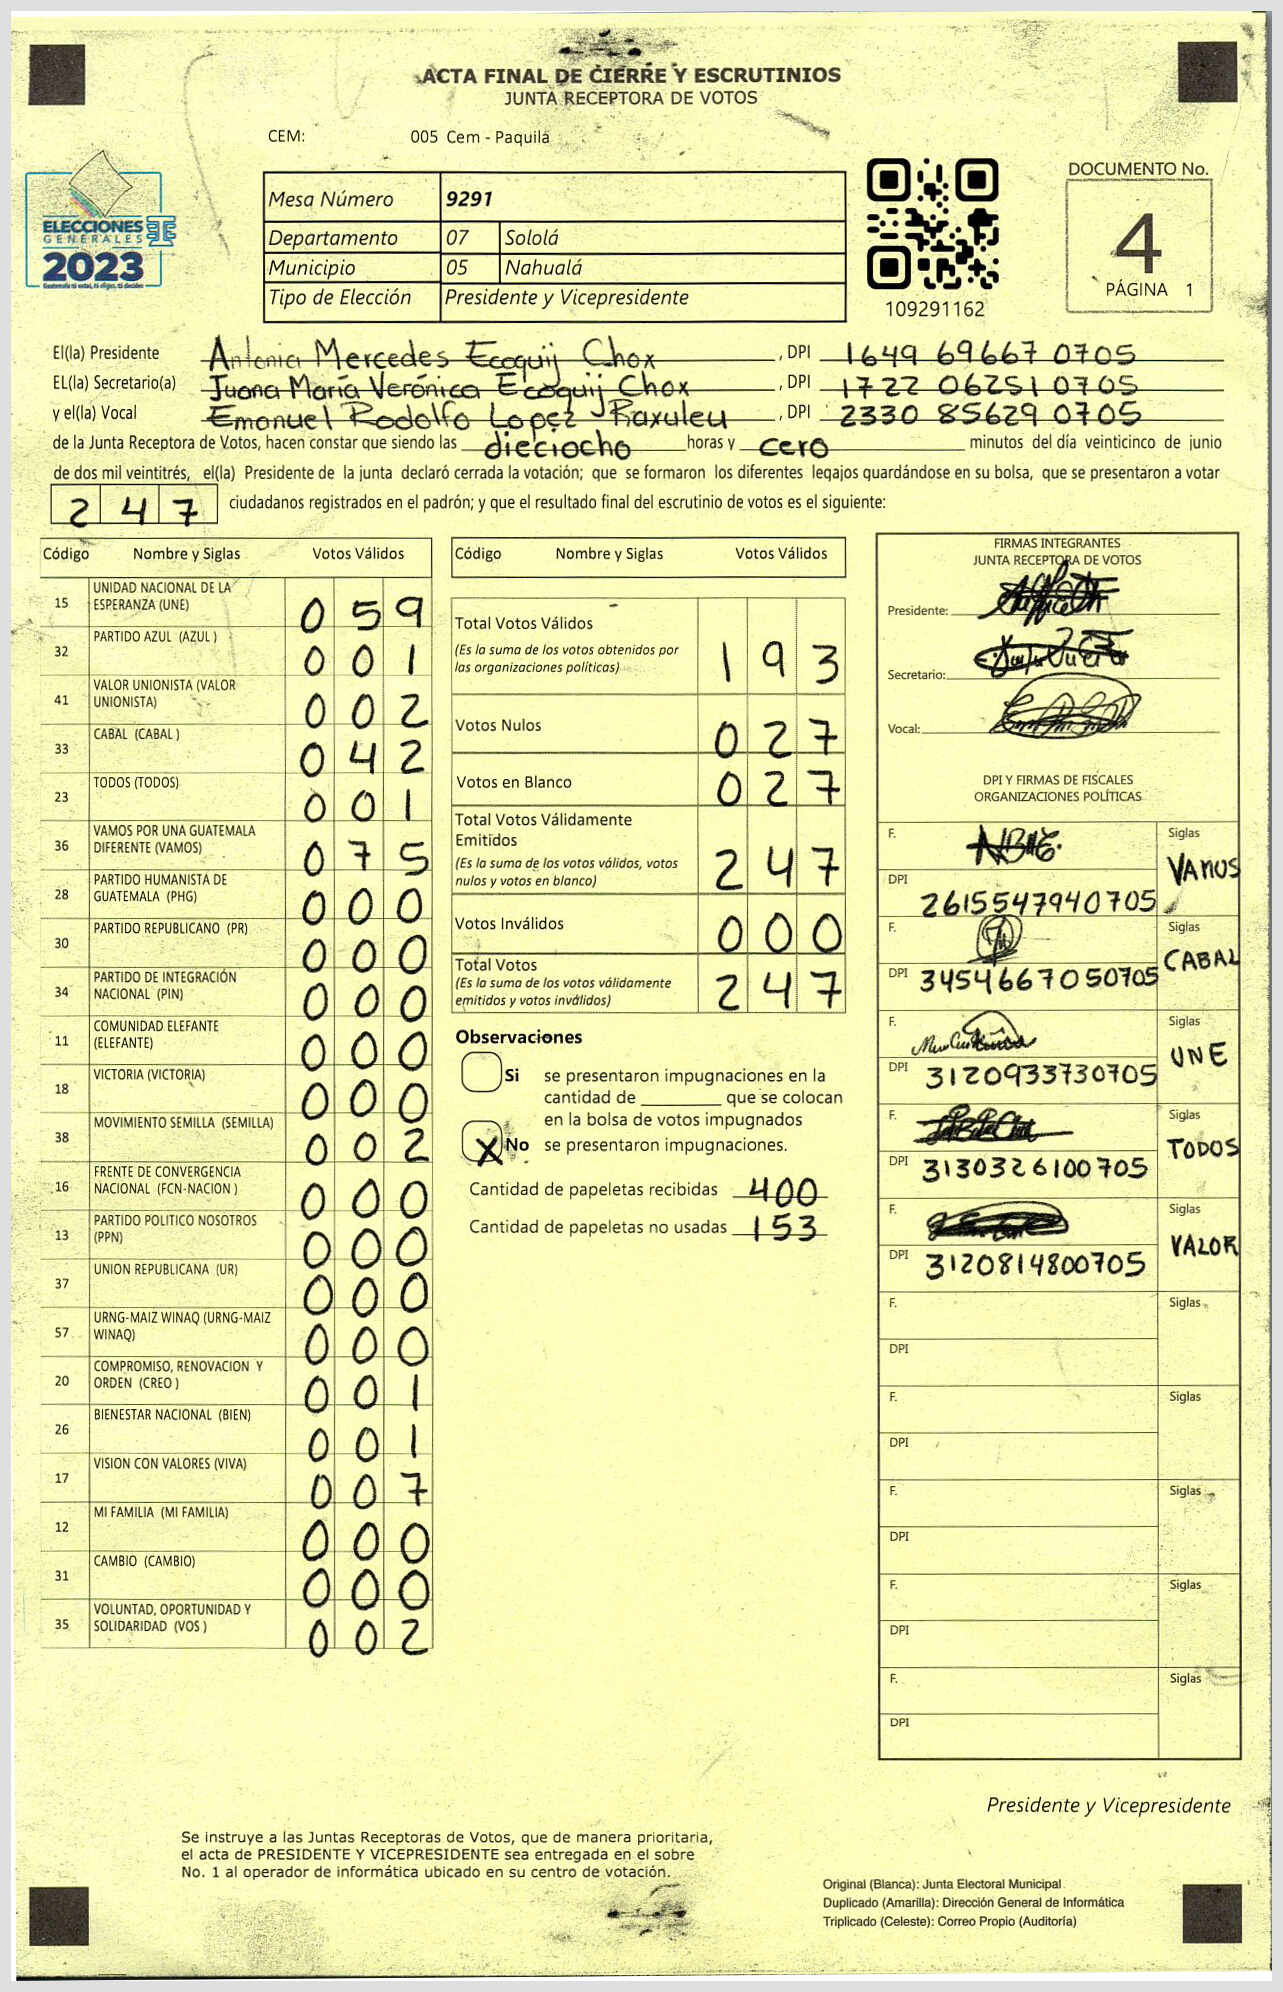 ACTA FINAL DE CIERRE Y ESCRUTINIOS
JUNTA RECEPTORA DE VOTOS
CEM: 005 Cem - Paquilá
ELECCIONES
GENERALES
2023
Guatemala tú votas, tú eliges, tú decides
Mesa Número 9291
Departamento 07 Sololá
Municipio 05 Nahualá
Tipo de Elección Presidente y Vicepresidente
109291162
DOCUMENTO No.
4
PÁGINA 1
El(la) Presidente Antonia Mercedes Ecoquij Chox , DPI 1649 69667 0705
EL(la) Secretario(a) Juana María Verónica Ecoquij Chox , DPI 1722 06251 0705
y el(la) Vocal Emanuel Rodolfo Lopez Raxuleu , DPI 2330 85629 0705
de la Junta Receptora de Votos, hacen constar que siendo las dieciocho horas y cero minutos del día veinticinco de junio
de dos mil veintitrés, el(la) Presidente de la junta declaró cerrada la votación; que se formaron los diferentes legajos guardándose en su bolsa, que se presentaron a votar
247 ciudadanos registrados en el padrón; y que el resultado final del escrutinio de votos es el siguiente:
Código Nombre y Siglas Votos Válidos
15 UNIDAD NACIONAL DE LA ESPERANZA (UNE) 059
32 PARTIDO AZUL (AZUL ) 001
41 VALOR UNIONISTA (VALOR UNIONISTA) 002
33 CABAL (CABAL ) 042
23 TODOS (TODOS) 001
36 VAMOS POR UNA GUATEMALA DIFERENTE (VAMOS) 075
28 PARTIDO HUMANISTA DE GUATEMALA (PHG) 000
30 PARTIDO REPUBLICANO (PR) 000
34 PARTIDO DE INTEGRACIÓN NACIONAL (PIN) 000
11 COMUNIDAD ELEFANTE (ELEFANTE) 000
18 VICTORIA (VICTORIA) 000
38 MOVIMIENTO SEMILLA (SEMILLA) 002
16 FRENTE DE CONVERGENCIA NACIONAL (FCN-NACION ) 000
13 PARTIDO POLITICO NOSOTROS (PPN) 000
37 UNION REPUBLICANA (UR) 000
57 URNG-MAIZ WINAQ (URNG-MAIZ WINAQ) 000
20 COMPROMISO, RENOVACION Y ORDEN (CREO ) 001
26 BIENESTAR NACIONAL (BIEN) 001
17 VISION CON VALORES (VIVA) 007
12 MI FAMILIA (MI FAMILIA) 000
31 CAMBIO (CAMBIO) 000
35 VOLUNTAD, OPORTUNIDAD Y SOLIDARIDAD (VOS ) 002
Código Nombre y Siglas Votos Válidos
Total Votos Válidos
(Es la suma de los votos obtenidos por las organizaciones políticas) 193
Votos Nulos 027
Votos en Blanco 027
Total Votos Válidamente Emitidos
(Es la suma de los votos válidos, votos nulos y votos en blanco) 247
Votos Inválidos 000
Total Votos
(Es la suma de los votos válidamente emitidos y votos inválidos) 247
Observaciones
Si se presentaron impugnaciones en la
cantidad de ________ que se colocan
en la bolsa de votos impugnados
X No se presentaron impugnaciones.
Cantidad de papeletas recibidas 400
Cantidad de papeletas no usadas 153
FIRMAS INTEGRANTES
JUNTA RECEPTORA DE VOTOS
Presidente:
Secretario:
Vocal:
DPI Y FIRMAS DE FISCALES
ORGANIZACIONES POLÍTICAS
F. Siglas VAMOS
DPI 2615547940705
F. Siglas CABAL
DPI 3454667050705
F. Siglas UNE
DPI 3120933730705
F. Siglas TODOS
DPI 3130326100705
F. Siglas VALOR
DPI 3120814800705
F. Siglas
DPI
F. Siglas
DPI
F. Siglas
DPI
F. Siglas
DPI
F. Siglas
DPI
Presidente y Vicepresidente
Se instruye a las Juntas Receptoras de Votos, que de manera prioritaria,
el acta de PRESIDENTE Y VICEPRESIDENTE sea entregada en el sobre
No. 1 al operador de informática ubicado en su centro de votación.
Original (Blanca): Junta Electoral Municipal
Duplicado (Amarilla): Dirección General de Informática
Triplicado (Celeste): Correo Propio (Auditoría)